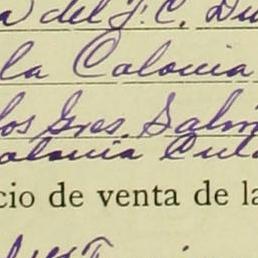 a del F. C. Du
la Colonia
los Gres. Salin
olonia Cul
cio de venta de la